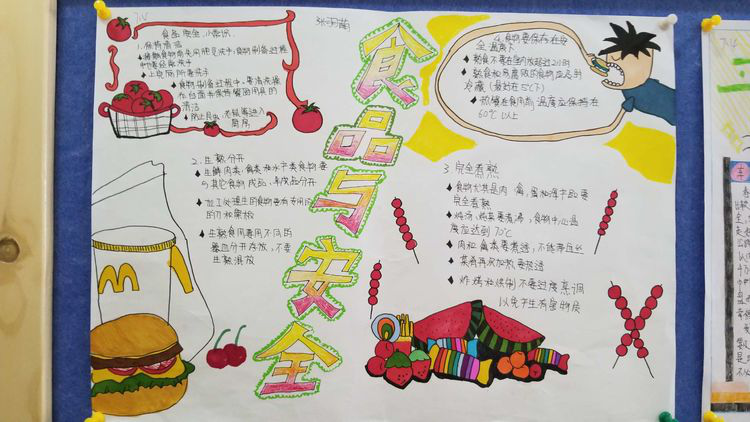 张羽萌
食品与安全
食品安全小常识
1.保持清洁
◆拿食物前先用肥皂洗手,食物制备过程
中要经常洗手
◆上完厕所要洗手
◆食物制备过程中,要清洗操
作台面并保持餐用具的
清洁
◆防止昆虫、老鼠等进入
厨房
2.生熟分开
◆生鲜肉类、禽类和水产类食物要
与其它食物成品、半成品分开
◆加工处理生的食物要有专用
的刀和案板
◆生熟食用要用不同的
器皿分开存放,不要
生熟混放
3.完全煮熟
◆食物尤其是肉、禽、蛋和海产品要
完全煮熟
◆炖汤、炖菜要煮沸,食物中心温
度应达到70℃
◆肉和禽类要煮透,不能带血丝
◆菜肴再次加热要热透
◆炸、烤和烘制不要过度烹调
以免产生有害物质
4.食物要保存在安
全温度下
◆熟食不要在室内放超过2小时
◆熟食和易腐败的食物应及时
冷藏(最好在5℃下)
◆热餐在食用前温度应保持在
60℃以上